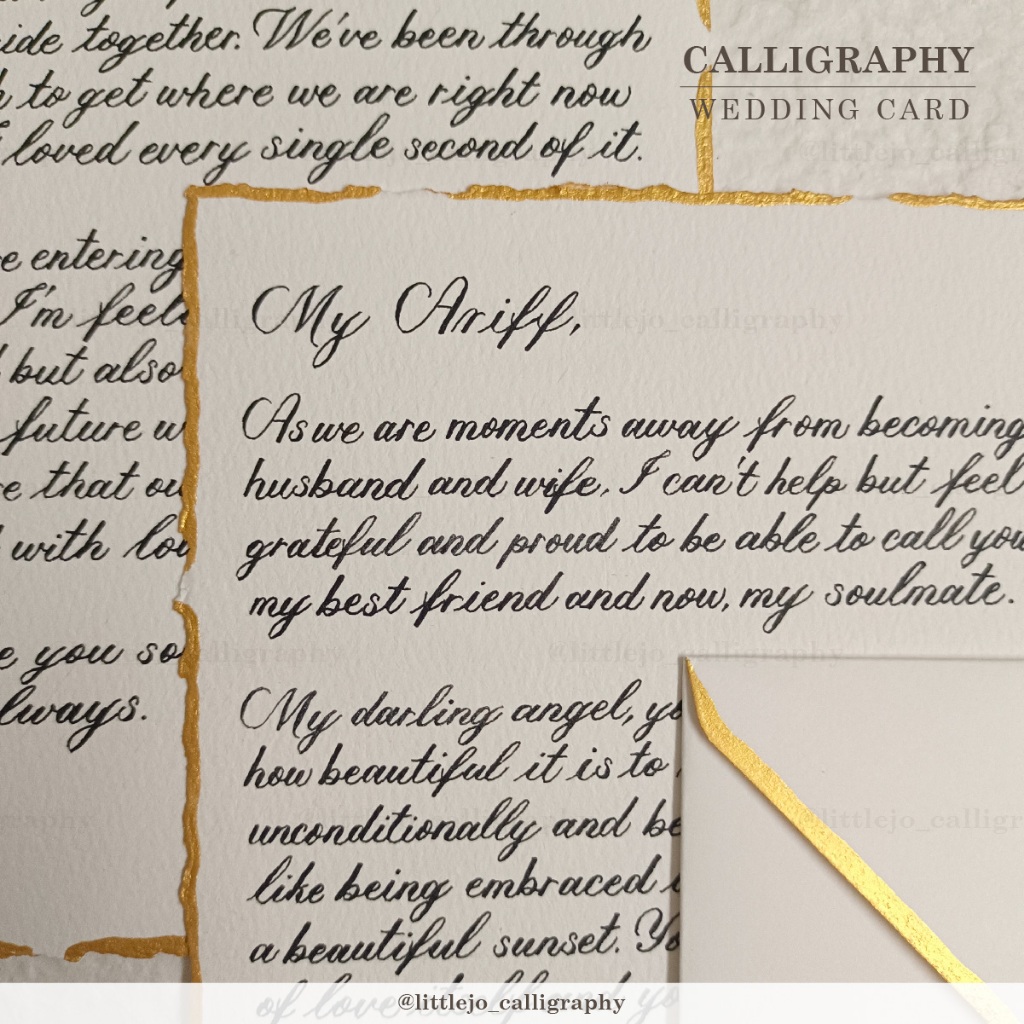 CALLIGRAPHY
WEDDING CARD
together. We've been through
to get where we are right now
loved every single second of it.
entering
I'm
but also
future
that
with
you so
always.
My Ariff,
As we are moments away from becoming
husband and wife, I can't help but feel
grateful and proud to be able to call you
my best friend and now, my soulmate.
My darling angel,
how beautiful it is to
unconditionally and
like being embraced
a beautiful sunset.
of love itself and
@littlejo_calligraphy